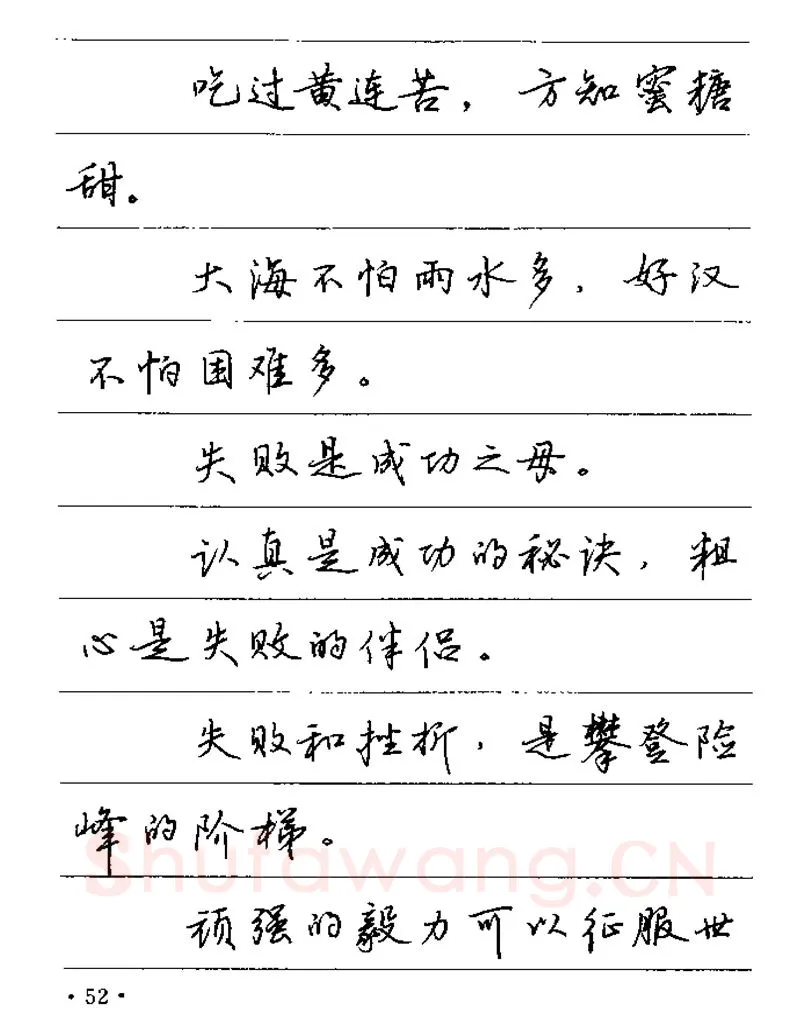 吃过黄连苦，方知蜜糖
甜。
大海不怕雨水多，好汉
不怕困难多。
失败是成功之母。
认真是成功的秘诀，粗
心是失败的伴侣。
失败和挫折，是攀登险
峰的阶梯。
Shufawang.CN
顽强的毅力可以征服世
·52·